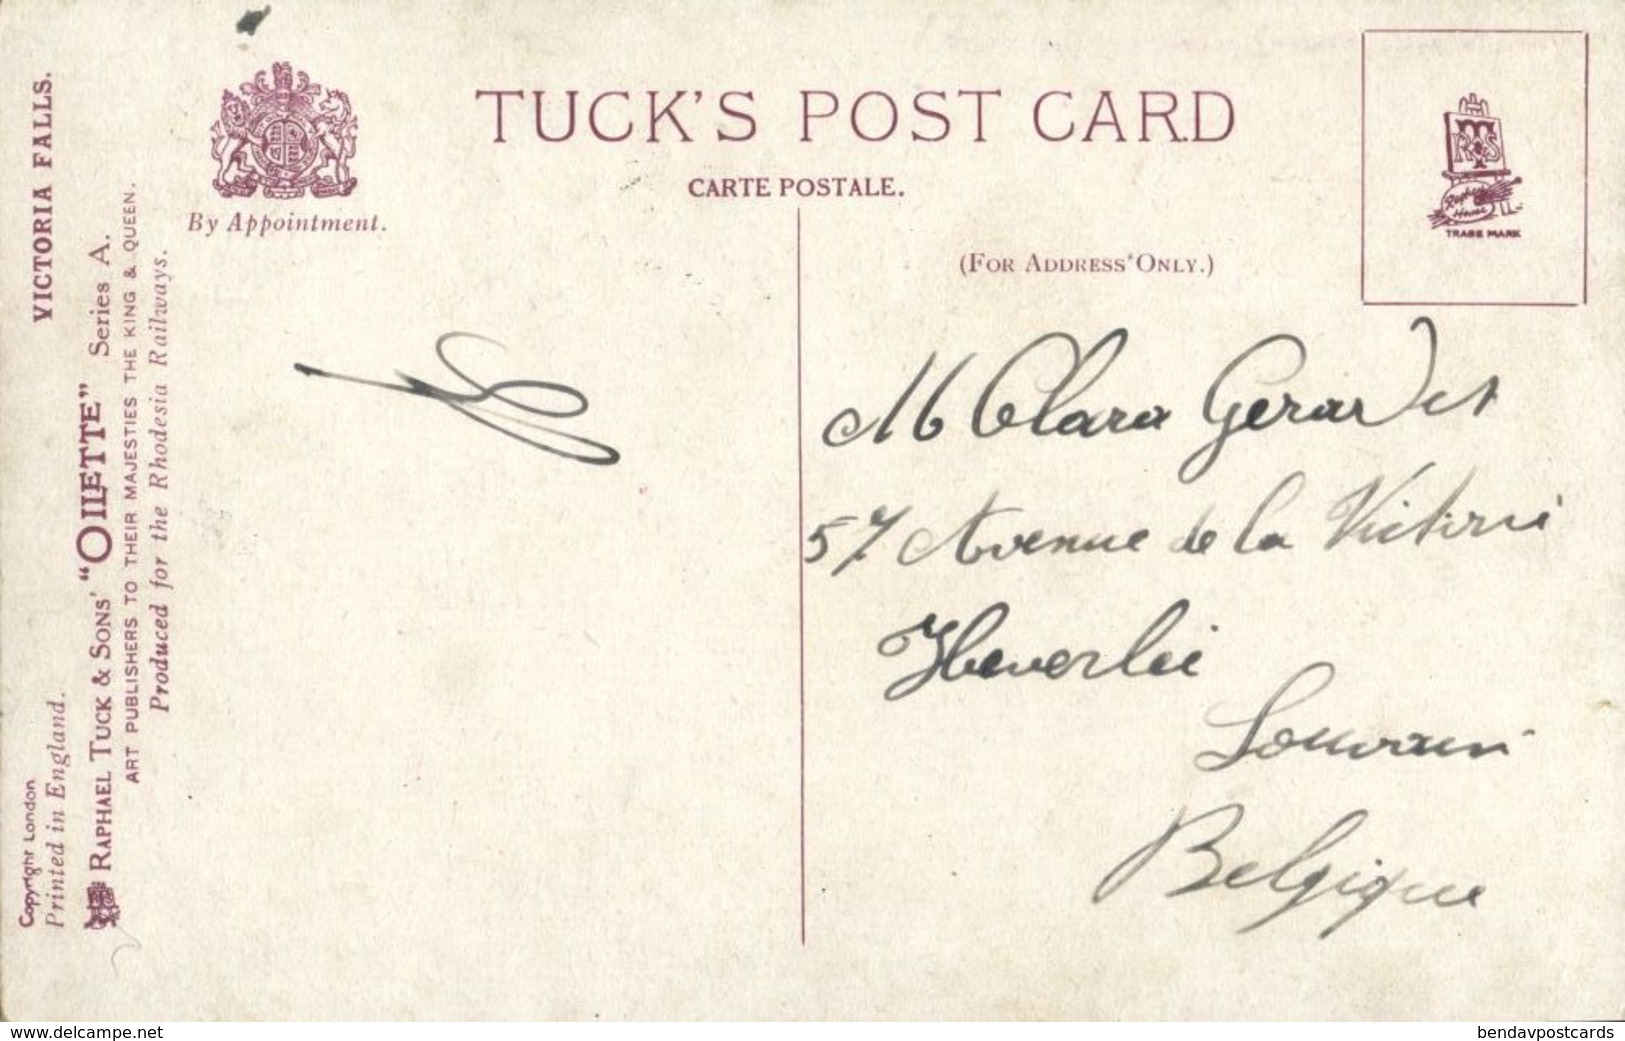 TUCK'S POST CARD
CARTE POSTALE.
By Appointment.
(FOR ADDRESS ONLY.)
TRADE MARK
VICTORIA FALLS.
Copyright London
Printed in England.
RAPHAEL TUCK & SONS' "OILETTE" Series A.
ART PUBLISHERS TO THEIR MAJESTIES THE KING & QUEEN.
Produced for the Rhodesia Railways.
Clara Gerardet
57 Avenue de la
Heverlée
Louvain
Belgique
www.delcampe.net
bendavpostcards